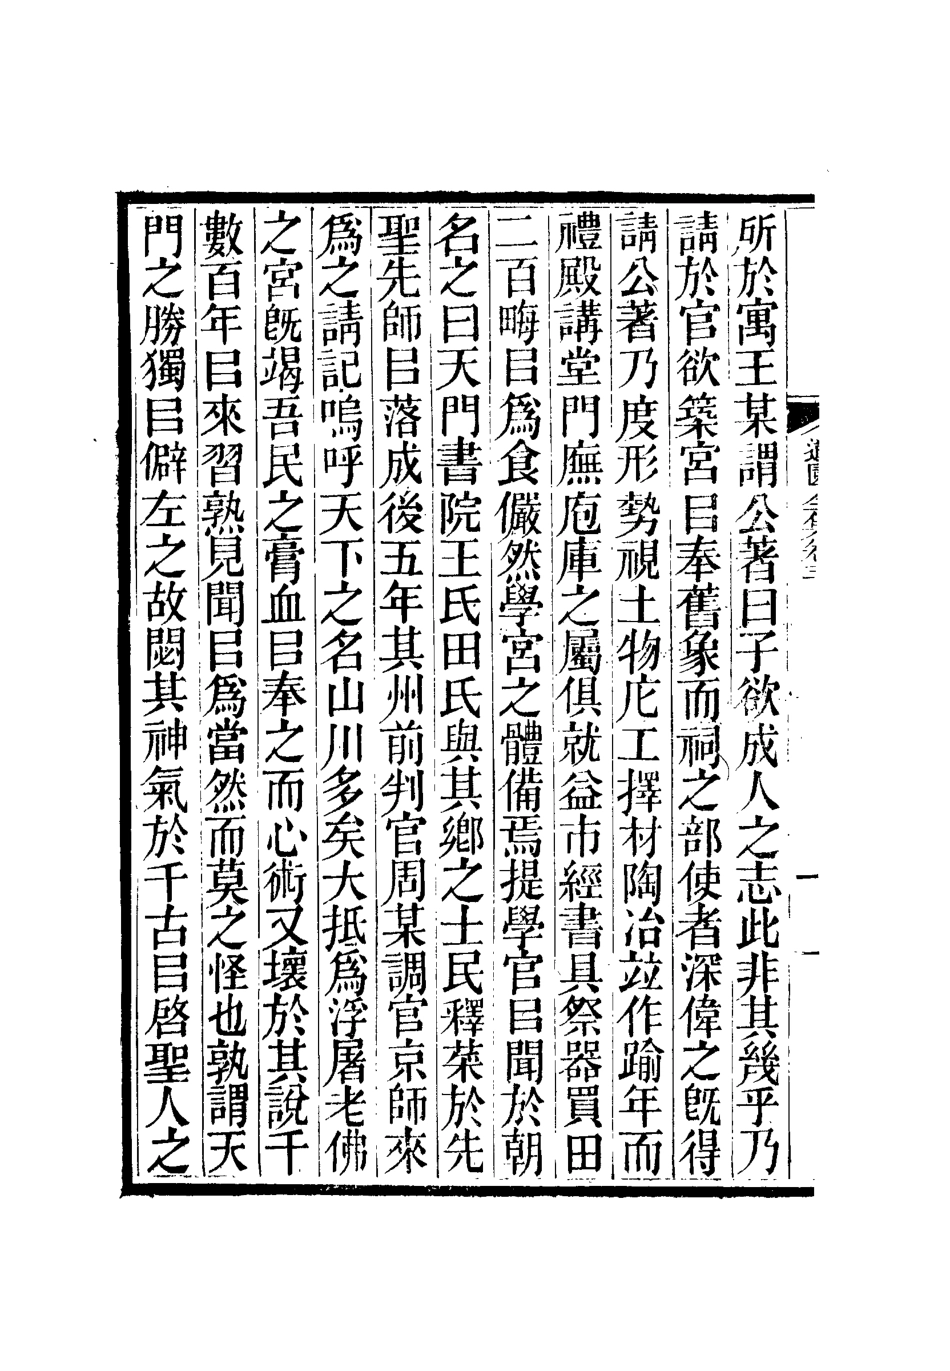 所於寓王某謂公著曰子欲成人之志此非其幾乎乃
請於官欲築宮㠯奉舊象而祠之部使者深偉之旣得
請公著乃度形勢視土物庀工擇材陶冶竝作踰年而
禮殿講堂門廡庖庫之屬俱就益市經書具祭器買田
二百畮㠯爲食儼然學宮之體備焉提學官㠯聞於朝
名之曰天門書院王氏田氏與其鄉之士民釋菜於先
聖先師㠯落成後五年其州前判官周某調官京師來
爲之請記嗚呼天下之名山川多矣大抵爲浮屠老佛
之宮旣竭吾民之膏血㠯奉之而心術又壞於其說千
數百年㠯來習熟見聞㠯爲當然而莫之怪也孰謂天
門之勝獨㠯僻左之故閟其神氣於千古㠯啓聖人之